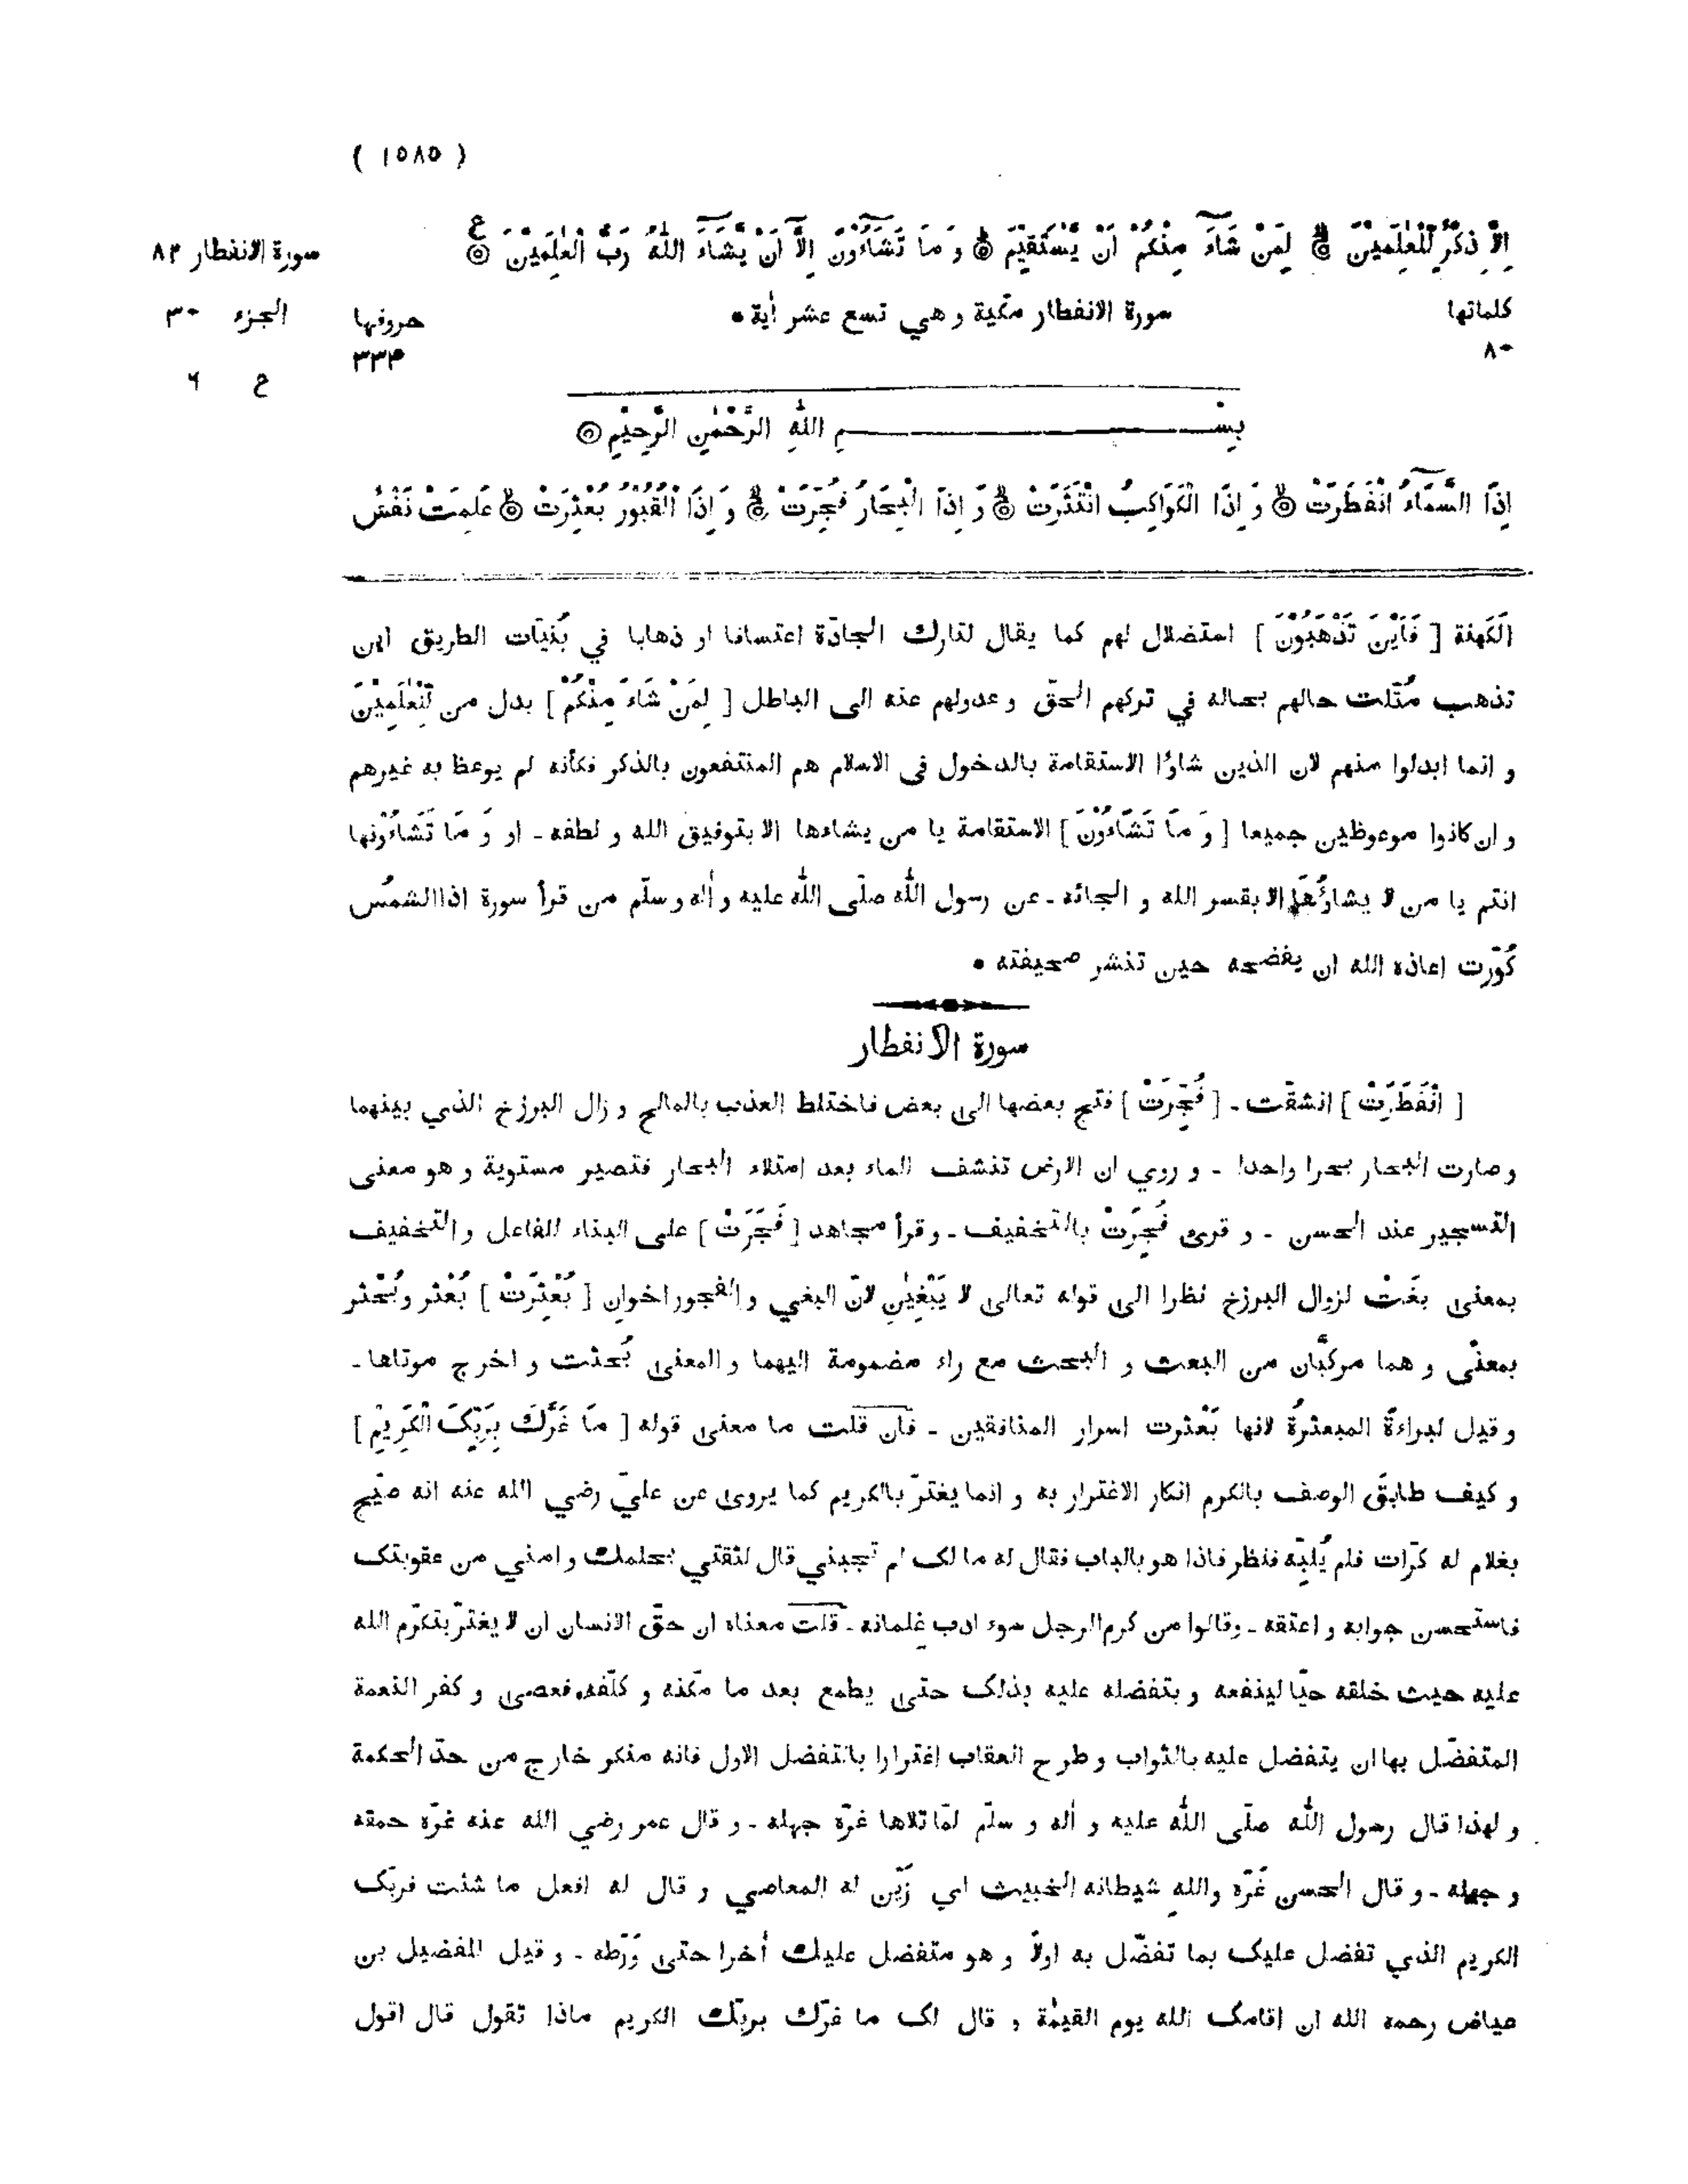 ( ١٥٨٥ )
اِلَّا ذِكْرٌ لِّلْعٰلَمِيْنَ ۞ لِمَنْ شَآءَ مِنْكُمْ اَنْ يَّسْتَقِيْمَ ۞ وَ مَا تَشَآءُوْنَ اِلَّآ اَنْ يَّشَآءَ اللّٰهُ رَبُّ الْعٰلَمِيْنَ ۞ ع
سورة الانفطار ٨٢
كلماتها سورة الانفطار مكّية وهي تسع عشر أية • حروفها
الجزء ٣٠
٨٠ ٣٣٤
ع ٦
بِسْــــمِ اللّٰهِ الرَّحْمٰنِ الرَّحِيْمِ ۞
اِذَا السَّمَآءُ انْفَطَرَتْ ۞ وَ اِذَا الْكَوَاكِبُ انْتَثَرَتْ ۞ وَ اِذَا الْبِحَارُ فُجِّرَتْ ۞ وَ اِذَا الْقُبُوْرُ بُعْثِرَتْ ۞ عَلِمَتْ نَفْسٌ
الكهنة [ فَاَيْنَ تَذْهَبُوْنَ ] استضلال لهم كما يقال لتارك الجادّة اعتسافا او ذهابا في بُنيّات الطريق اين
تذهب مُثّلت حالهم بحاله في تركهم الحقّ وعدولهم عنه الى الباطل [ لِمَنْ شَاءَ مِنْكُمْ ] بدل من لِّلْعٰلَمِيْنَ
و انما ابدلوا منهم لان الذين شاوٴا الاستقامة بالدخول فى الاسلام هم المنتفعون بالذكر فكأنه لم يوعظ به غيرهم
و ان كانوا موعوظين جميعا [ وَ مَا تَشَاءُوْنَ ] الاستقامة يا من يشاءها الا بتوفيق الله و لطفه ـ او وَ مَا تَشَاءُوْنها
انتم يا من لا يشاؤُها الا بقسر الله و الجائه ـ عن رسول اللّٰه صلّى اللّٰه عليه و أله وسلّم من قرأ سورة اذا الشمسُ
كُوّرت اعاذه الله ان يفضحه حين تنشر صحيفته •
سورة الانفطار
[ انْفَطَرَتْ ] انشقّت ـ [ فُجِّرَتْ ] فتح بعضها الى بعض فاختلط العذب بالمالح و زال البرزخ الذي بينهما
وصارت البحار بحرا واحدا ـ و روي ان الارض تنشف الماء بعد امتلاء البحار فتصير مستوية و هو معنى
التسجير عند الحسن ـ و قرئ فُجِرَتْ بالتخفيف ـ وقرأ مجاهد [ فَجَرَتْ ] على البناء للفاعل و التخفيف
بمعنى بغَتْ لزوال البرزخ نظرا الى قوله تعالى لا يَبْغِيٰنِ لانّ البغي و الفجور اخوان [ بُعْثِرَتْ ] بُعْثر وبُحْثر
بمعنًى و هما مركَّبان من البعث و البحث مع راء مضمومة اليهما والمعنى بُحثت و اخرج موتاها ـ
و قيل لبراءةَ المبعثرةُ لانها بَعْثرت اسرار المنافقين ـ فان قلت ما معنى قوله [ مَا غَرَّكَ بِرَبِّكَ الْكَرِيْمِ ]
و كيف طابق الوصف بالكرم انكار الاغترار به و انما يغترّ بالكريم كما يروى عن عليّ رضي الله عنه انه صيّح
بغلام له كرّات فلم يُلبّه فنظر فاذا هو بالباب فقال له ما لك لم تجبني قال لثقتي بحلمك و امني من عقوبتك
فاستحسن جوابه و اعتقه ـ وقالوا من كرم الرجل سوء ادب غِلمانه ـ قلت معناه ان حقّ الانسان ان لا يغترّ بتكرّم الله
عليه حيث خلقه حيّا لينفعه و بتفضله عليه بذلك حتى يطمع بعد ما مكّنه و كلّفه فعصى و كفر النعمة
المتفضّل بها ان يتفضل عليه بالثواب و طرح العقاب اغترارا بالتفضل الاول فانه منكر خارج من حدّ الحكمة
و لهذا قال رسول اللّٰه صلّى اللّٰه عليه و أله و سلّم لمّا تلاها غرّه جهله ـ و قال عمر رضي الله عنه غرّه حمقه
و جهله ـ و قال الحسن غَرّه واللهِ شيطانه الخبيث اي زَيّن له المعاصي و قال له افعل ما شئت فربّك
الكريم الذي تفضل عليك بما تفضّل به اولاً و هو متفضل عليك أخرا حتى وَرّطه ـ و قيل للفضيل بن
عياض رحمه الله ان اقامك الله يوم القيٰمة و قال لك ما غرّك بربّك الكريم ماذا تقول قال اقول